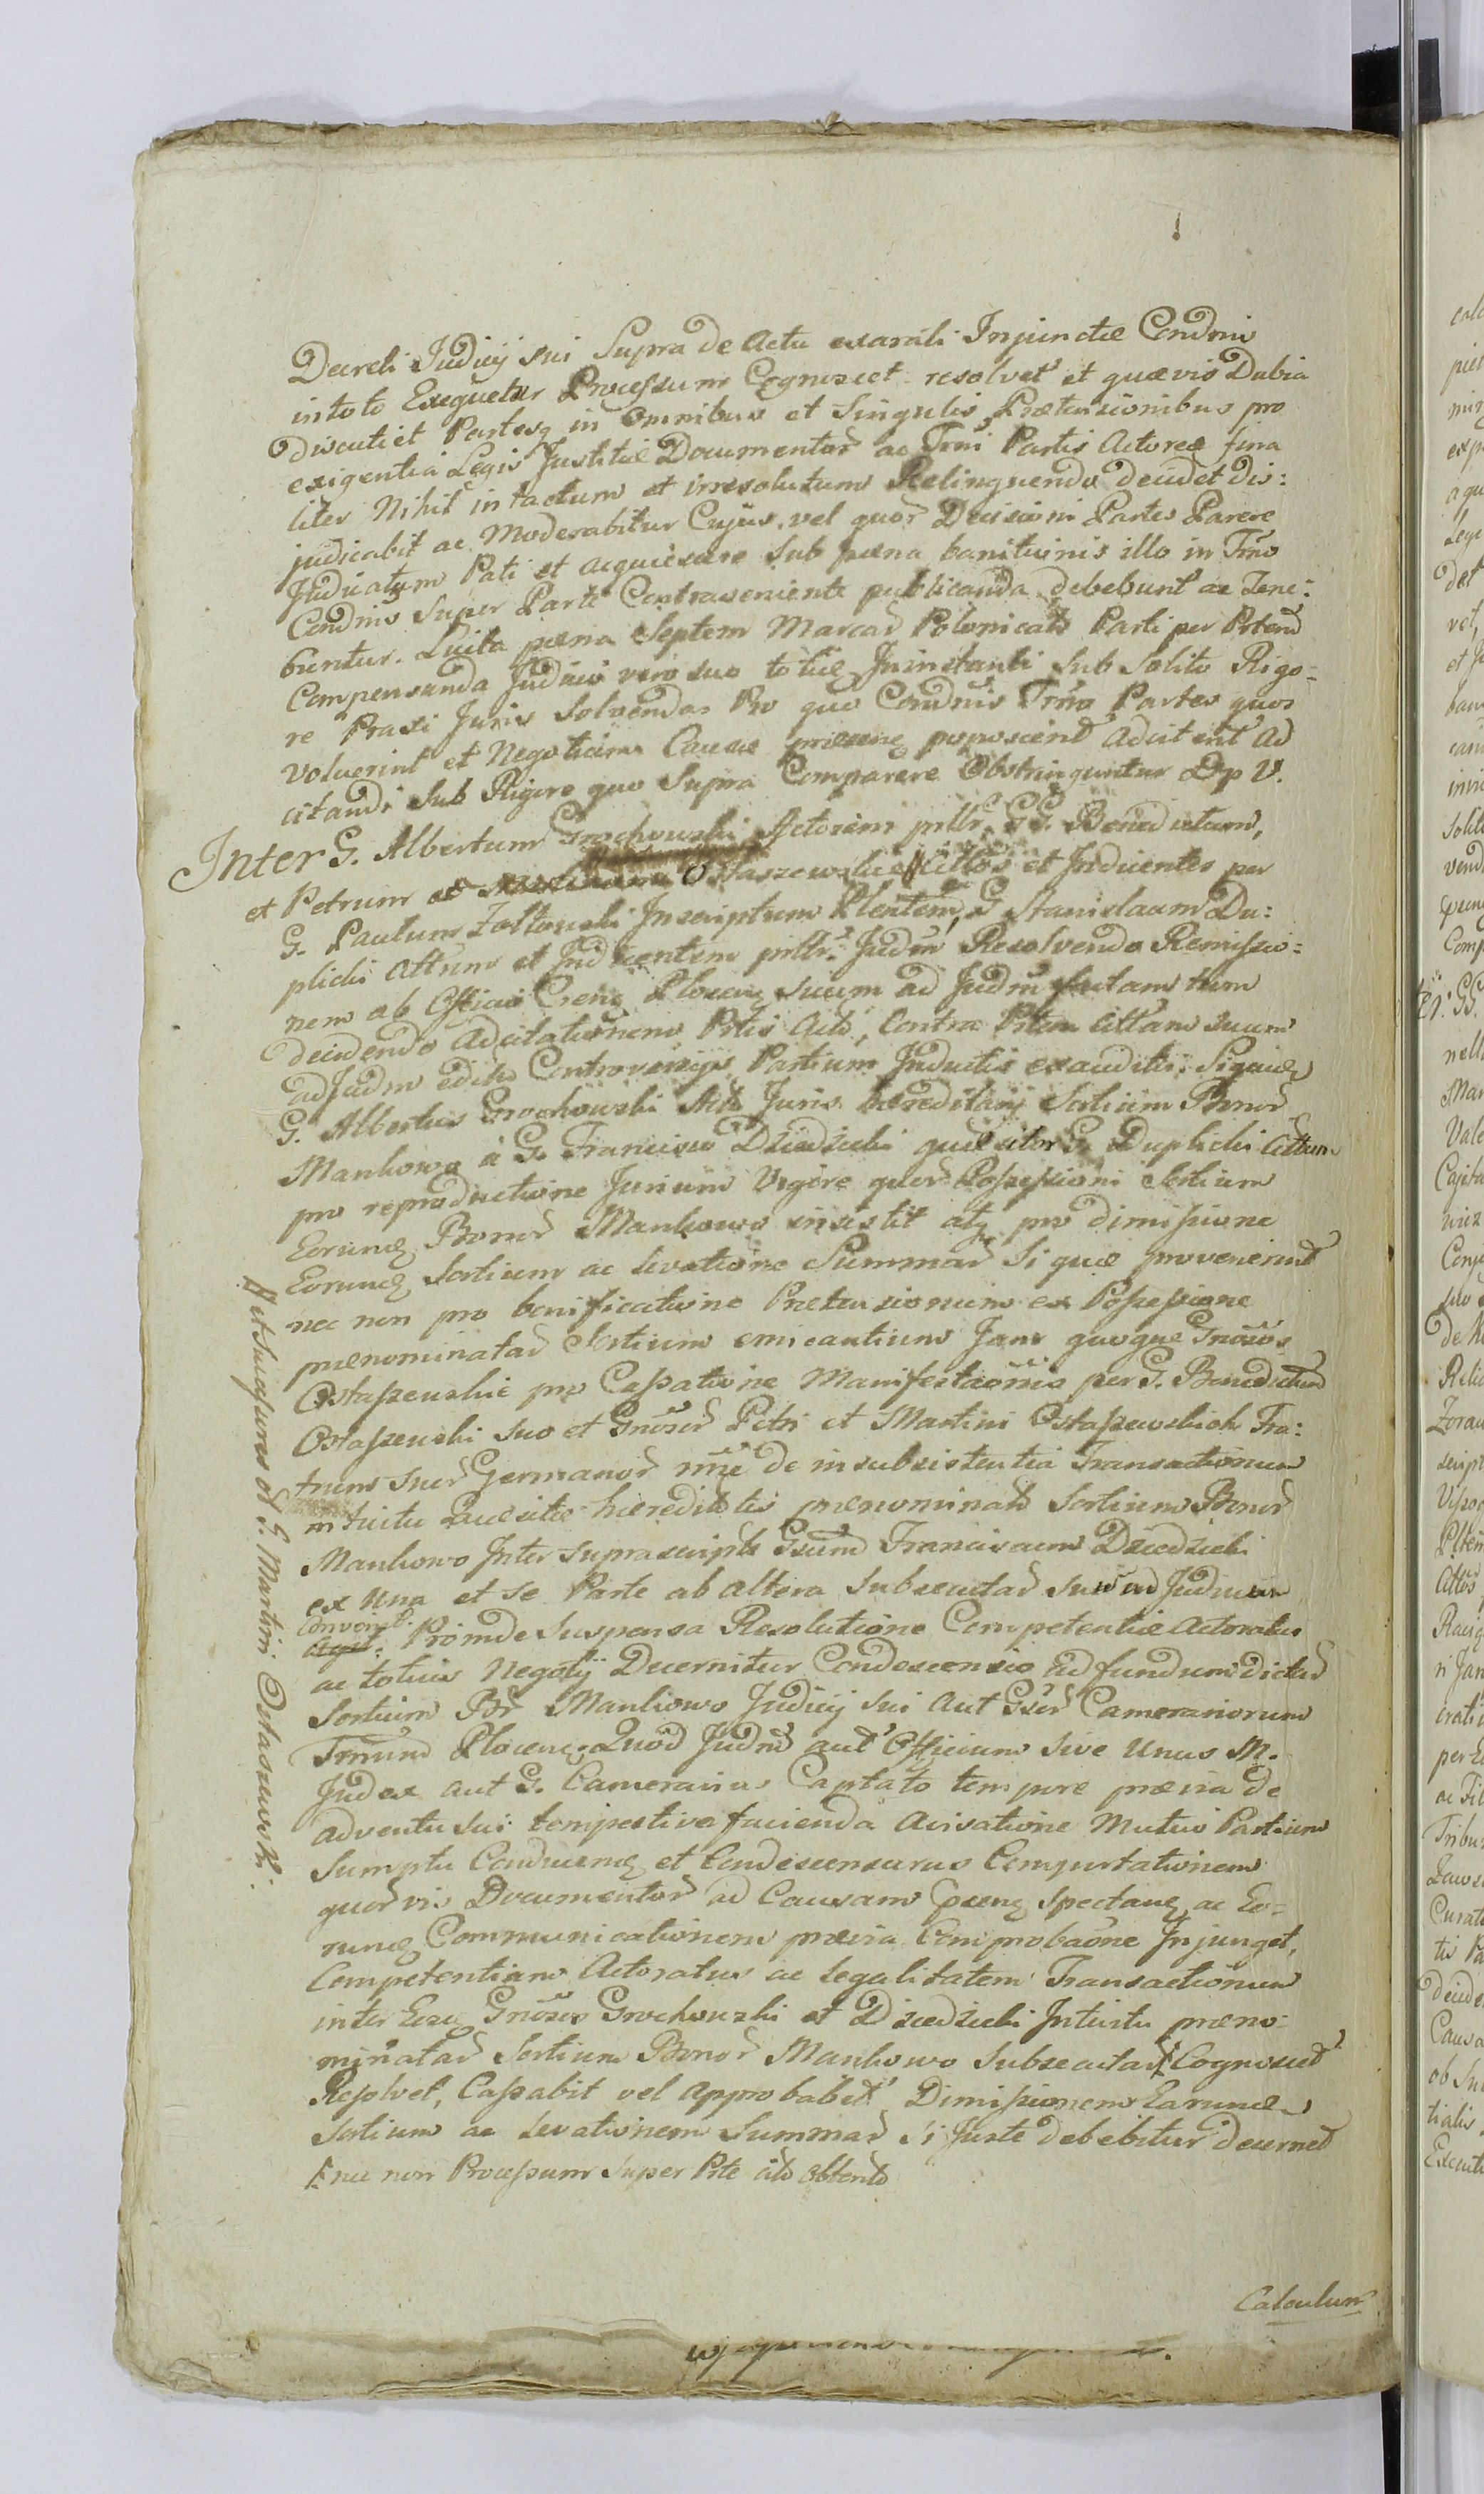 Decreti Judicij sui Supra de Actu exarati Injunctæ Condnis
in toto Exequetur Processum Cognoscet resolvet et quævis Dubia
discutiet Partesq in omnibus et Singulis Prætensionibus pro
exigentia Legis Justitiæ Documentor ac Trni Partis Actoreæ fina
liter Nihil intactum et irresolutum Relinquendo decidet dis:
judicabit ac Moderabitur Cujus vel quor Decisioni Partes Parere
Judicatum Pati et acquiescere sub pæna banitionis illo in Trno
Condnis Super Parte Contraveniente publicanda debebunt ac Tene:
buntur. Luita pæna Septem Marcar Polonicalis Parti per Ptem
Compensanda Judicio vero suo totiæ Ininstanti Sub Solito Rigo-
re Praxi Juris Solvenda Pro quo Condnis Trno Partes quos
voluerint et Negotium Causæ præsenq poposcerit adcitent Ad
citandi Sub Rigore quo Supra Comparere Obstringuntur Dp V.
Inter G. Albertum Grochowski Actorem pnllr GG. Benedictum,
et Petrum Ostaszewskie Cittos et Inducentes per
G. Paulum Zoltowski Inscriptum Plentem, G Stanislaum Du:
plicki Cittum et Inducentem pnllr. Judm Resolvendo Remissio:
nem ab Officio Crenq Plocenq suum ad Judm factam tum
decidendo Adcitationem Ptis Acto, Contra Ptem Cittam suum
ad Judm edito Controversijs Partium Inductis exauditis. Siquidq
G. Albertus Grochowski Acto Juris hæreditarij Sortium Bonor
Mankowo à G. Francisco Dziedzicki quæsitor G. Duplicki Cittum
pro reproductione Jurium Vigore quor Possessioni Sortium
Eorundq Bonor Mankowo insistit atq pro dimissione
Eorundq Sortium ac levatione Summar si quæ provenerint
nec non pro bonificatione Prætensionum ex Possessione
prænominatar Sortium emicantium Jam quoque Gnosos
Ostaszewskie pro Cassatione Manifestaonis per G. Benedictum
Ostaszewski suo et Gnosor Petri et Martini Ostaszewskich Fra:
trum suor Germanor nne de insubsistentia Transactionum
intuitu quæsitæ hæreditatis prænominatar Sortium Bonor
Mankowo Inter suprascriptos Gsum Franciscum Dziedzicki
ex Una et se Parte ab altera subsecutar suum ad Judicium
Convenit.
Proinde suspensa Resolutione Competentiæ Actoratus
ac totius Negotij Decernitur Condescensio ad fundum dictar
Sortium Br Mankowo Judicij sui Aut Gsor Camerariorum
Trnum Plocenq Quod Judm aut Officium sive Unus M.
Judex aut G. Camerarius Captato tempore prævia de
adventu sui tempestive facienda Avisatione Mutuo Partium
Sumptu Conducenq et Condescensurus Comportationem
quor vis Documentor ad Causam præsenq spectanq ac Eo-
rundq Communicationem prævia Comprobaone Injunget,
Competentiam Actoratus ac legalitatem Transactionum
inter Eosq Gnosos Grochowski et Dziedzicki Intuitu præno-
minatar Sortium Bonor Mankowo subsecutar Cognoscet
Resolvet, Cassabit vel approbabit Dimissionem Earundq
Sortium ac levationem Summar si Juste debebitur decernet
nec non Processum super Pte Cito obtento
Calculum
et suo assensu G. Martini Ostaszewski.